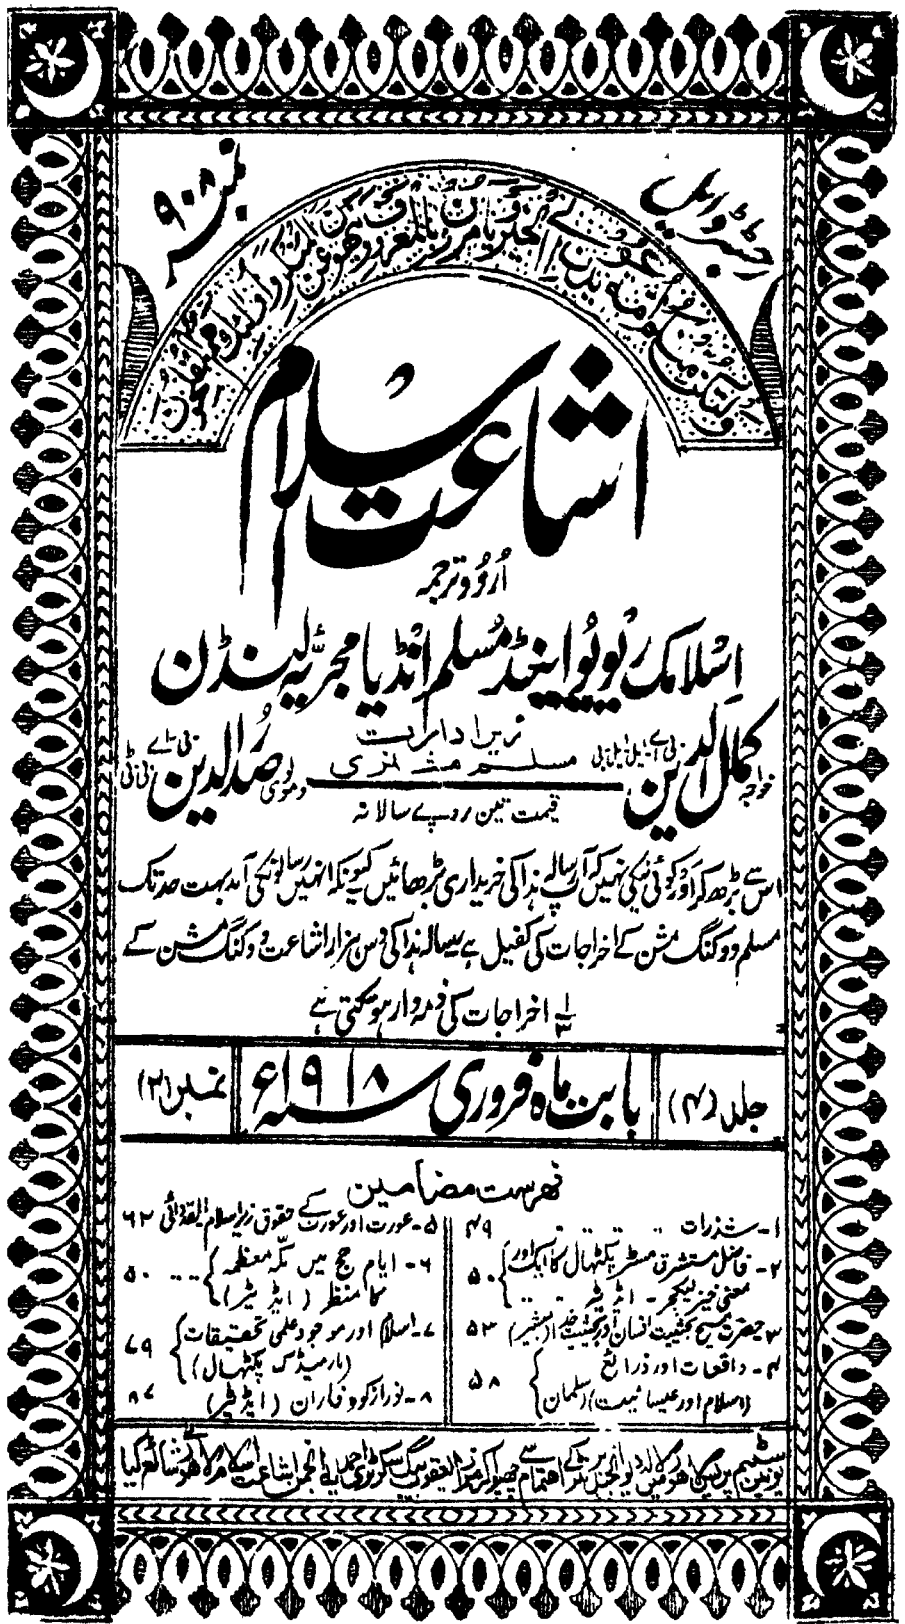 رجسٹرڈ ایل
نمبر ۹۰۸
ولتکن منکم امة یدعون الی الخیر و یامرون بالمعروف و ینہون عن المنکر و اولئک ہم المفلحون
اشاعت اسلام
اُردو ترجمہ
اسلامک ریویو اینڈ مسلم انڈیا مجریہ لنڈن
زیر ادارت
خواجہ کمال الدین بی اے ایل ایل بی مسلم مشنری و مولوی صدر الدین بی اے بی ٹی
قیمت تین روپے سالانہ
اس سے بڑھ کر اور کوئی نیکی نہیں کہ آپ رسالہ ہذا کی خریداری بڑھائیں کیونکہ انہیں رسالونکی آمد بہت حد تک
مسلم ووکنگ مشن کے اخراجات کی کفیل ہے رسالہ ہذا کی دس ہزار اشاعت ووکنگ مشن کے
۱/۳ اخراجات کی ذمہ وار ہو سکتی ہے
جلد (۴) بابت ماہ فروری سنہ ۱۹۱۸ء نمبر (۲)
فہرست مضامین
۱- شذرات ۴۹
۲- فاضل مستشرق مسٹر پکتھال کا ایک اور
معنی خیز لیکچر - ایڈیٹر ۵۰
۳- حضرت مسیح بحیثیت انسان اور بحیثیت خدا (بشیر) ۵۳
۴- واقعات اور ذرائع
(اسلام اور عیسائیت) (سلمان) ۵۸
۵- عورت اور عورت کے حقوق زیر اسلام القدوائی ۶۲
۶- ایام حج میں مکّہ معظمہ
کا منظر (ایڈیٹر) ۵۰
۷- اسلام اور موجود علمی تحقیقات
(مارمیڈیوک پکتھال) ۷۹
۸- نور از کوہ فاران (ایڈیٹر) ۸۷
سٹیم پریس لاہور میں اہتمام سے چھپوا کر سکرٹری احمدیہ انجمن اشاعت اسلام لاہور نے شائع کیا